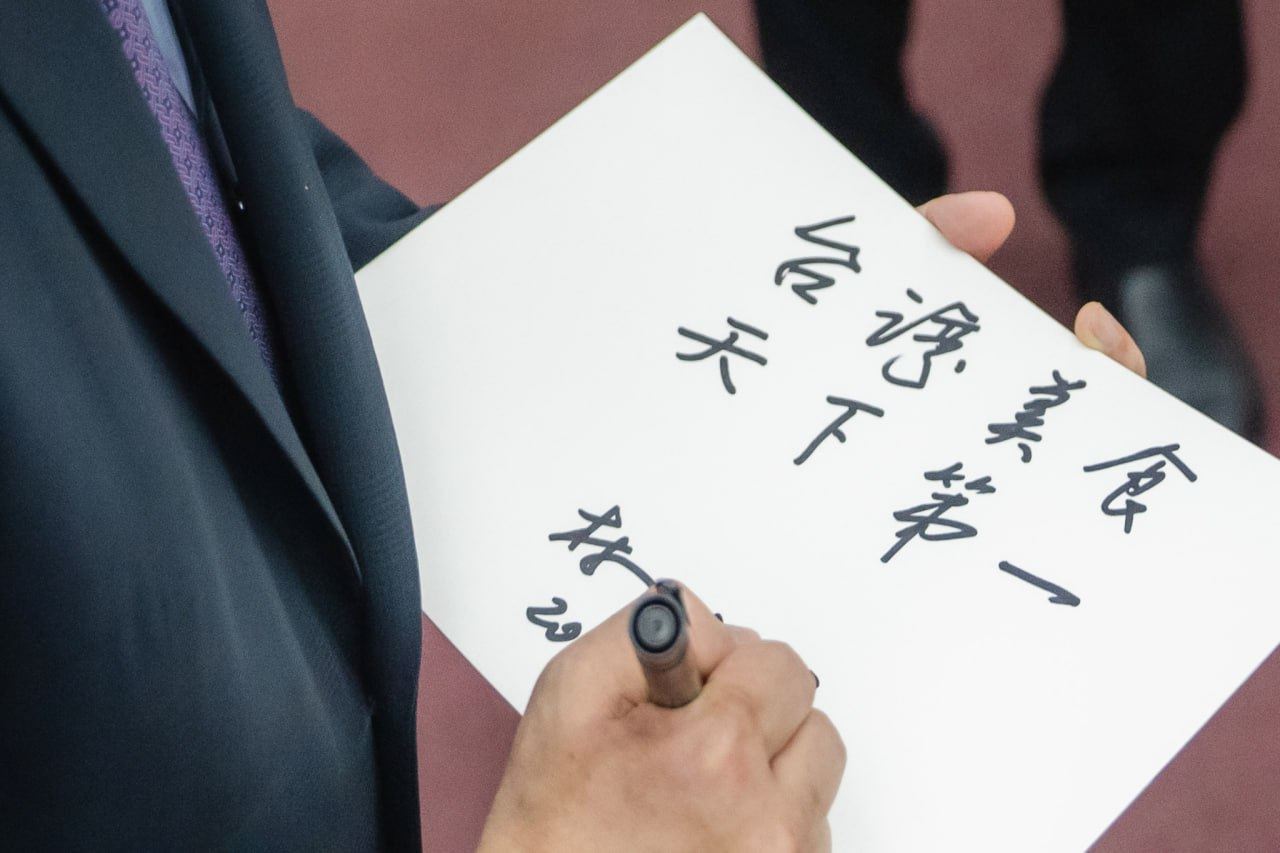 台灣美食
天下第一
20